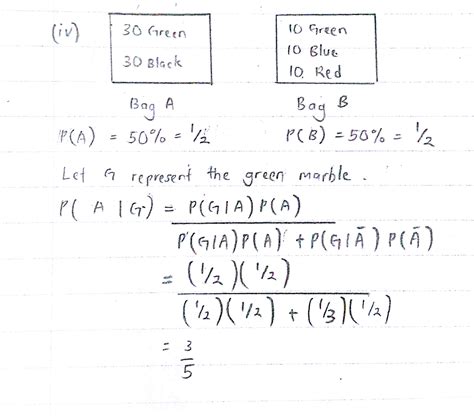 (iv) 30 Green 10 Green
30 Black 10 Blue
10. Red
Bag A Bag B
P(A) = 50% = 1/2 P(B) = 50% = 1/2
Let G represent the green marble.
P( A | G) = P(G|A) P(A)
P(G|A) P(A) + P(G|Ā) P(Ā)
= (1/2)(1/2)
(1/2)(1/2) + (1/3)(1/2)
= 3
5